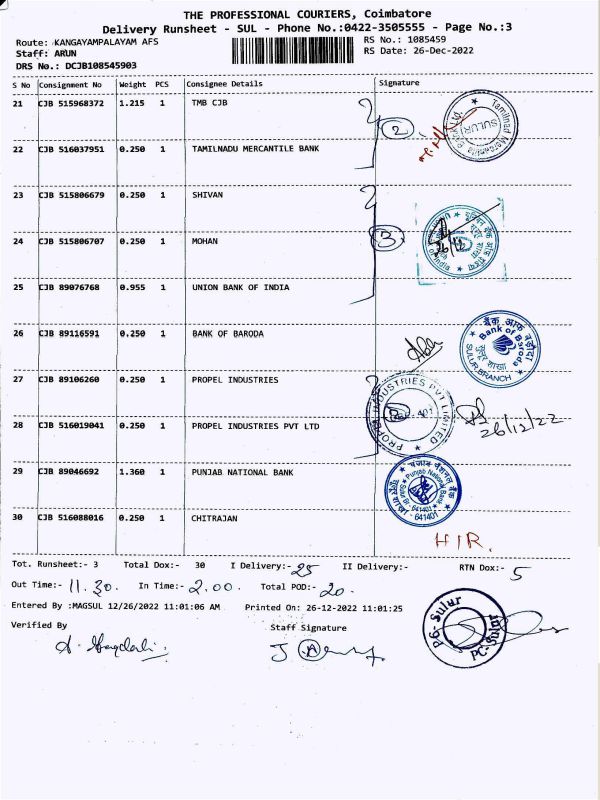 THE PROFESSIONAL COURIERS, Coimbatore
Delivery Runsheet - SUL - Phone No.:0422-3505555 - Page No.:3
Route: KANGAYAMPALAYAM AFS
RS No.: 1085459
Staff: ARUN
RS Date: 26-Dec-2022
DRS No.: DCJB108545903
S No Consignment No Weight PCS Consignee Details Signature
21 CJB 515968372 1.215 1 TMB CJB
2
Tamilnad Mercantile
SULUR
22 CJB 516037951 0.250 1 TAMILNADU MERCANTILE BANK
23 CJB 515806679 0.250 1 SHIVAN
24 CJB 515806707 0.250 1 MOHAN
3
26/12
25 CJB 89076768 0.955 1 UNION BANK OF INDIA
26 CJB 89116591 0.250 1 BANK OF BARODA
बैंक ऑफ़ बड़ौदा
Bank of Baroda
SULUR BRANCH
27 CJB 89106260 0.250 1 PROPEL INDUSTRIES
PROPEL INDUSTRIES PVT LIMITED
26/12/22
28 CJB 516019041 0.250 1 PROPEL INDUSTRIES PVT LTD
29 CJB 89046692 1.360 1 PUNJAB NATIONAL BANK
पंजाब नैशनल बैंक
Punjab National Bank
641401
30 CJB 516088016 0.250 1 CHITRAJAN
HIR.
Tot. Runsheet:- 3 Total Dox:- 30 I Delivery:- 25 II Delivery:- RTN Dox:- 5
Out Time:- 11.30. In Time:- 2.00. Total POD:- 20.
Entered By :MAGSUL 12/26/2022 11:01:06 AM Printed On: 26-12-2022 11:01:25
Verified By Staff Signature
PC-Sulur
PC-Sulur